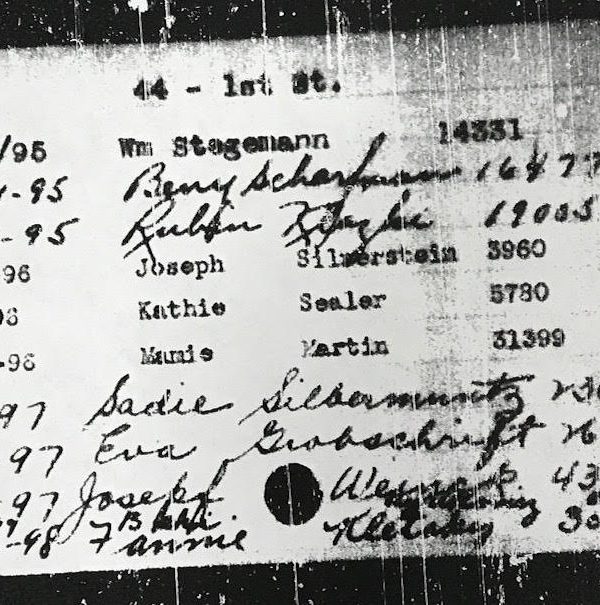 44 - 1st St.
/95 Wm Stegemann 14331
-95 Beny Scharfmann 16477
-95 Rubin 19005
96 Joseph Silverstein 3960
Kathie Sealer 5780
-96 Mamie Martin 31399
97 Sadie Silbermuntz 23
97 Eva Grobschrift 26
-97 Joseph 43
-98 Fannie Kletzky 30